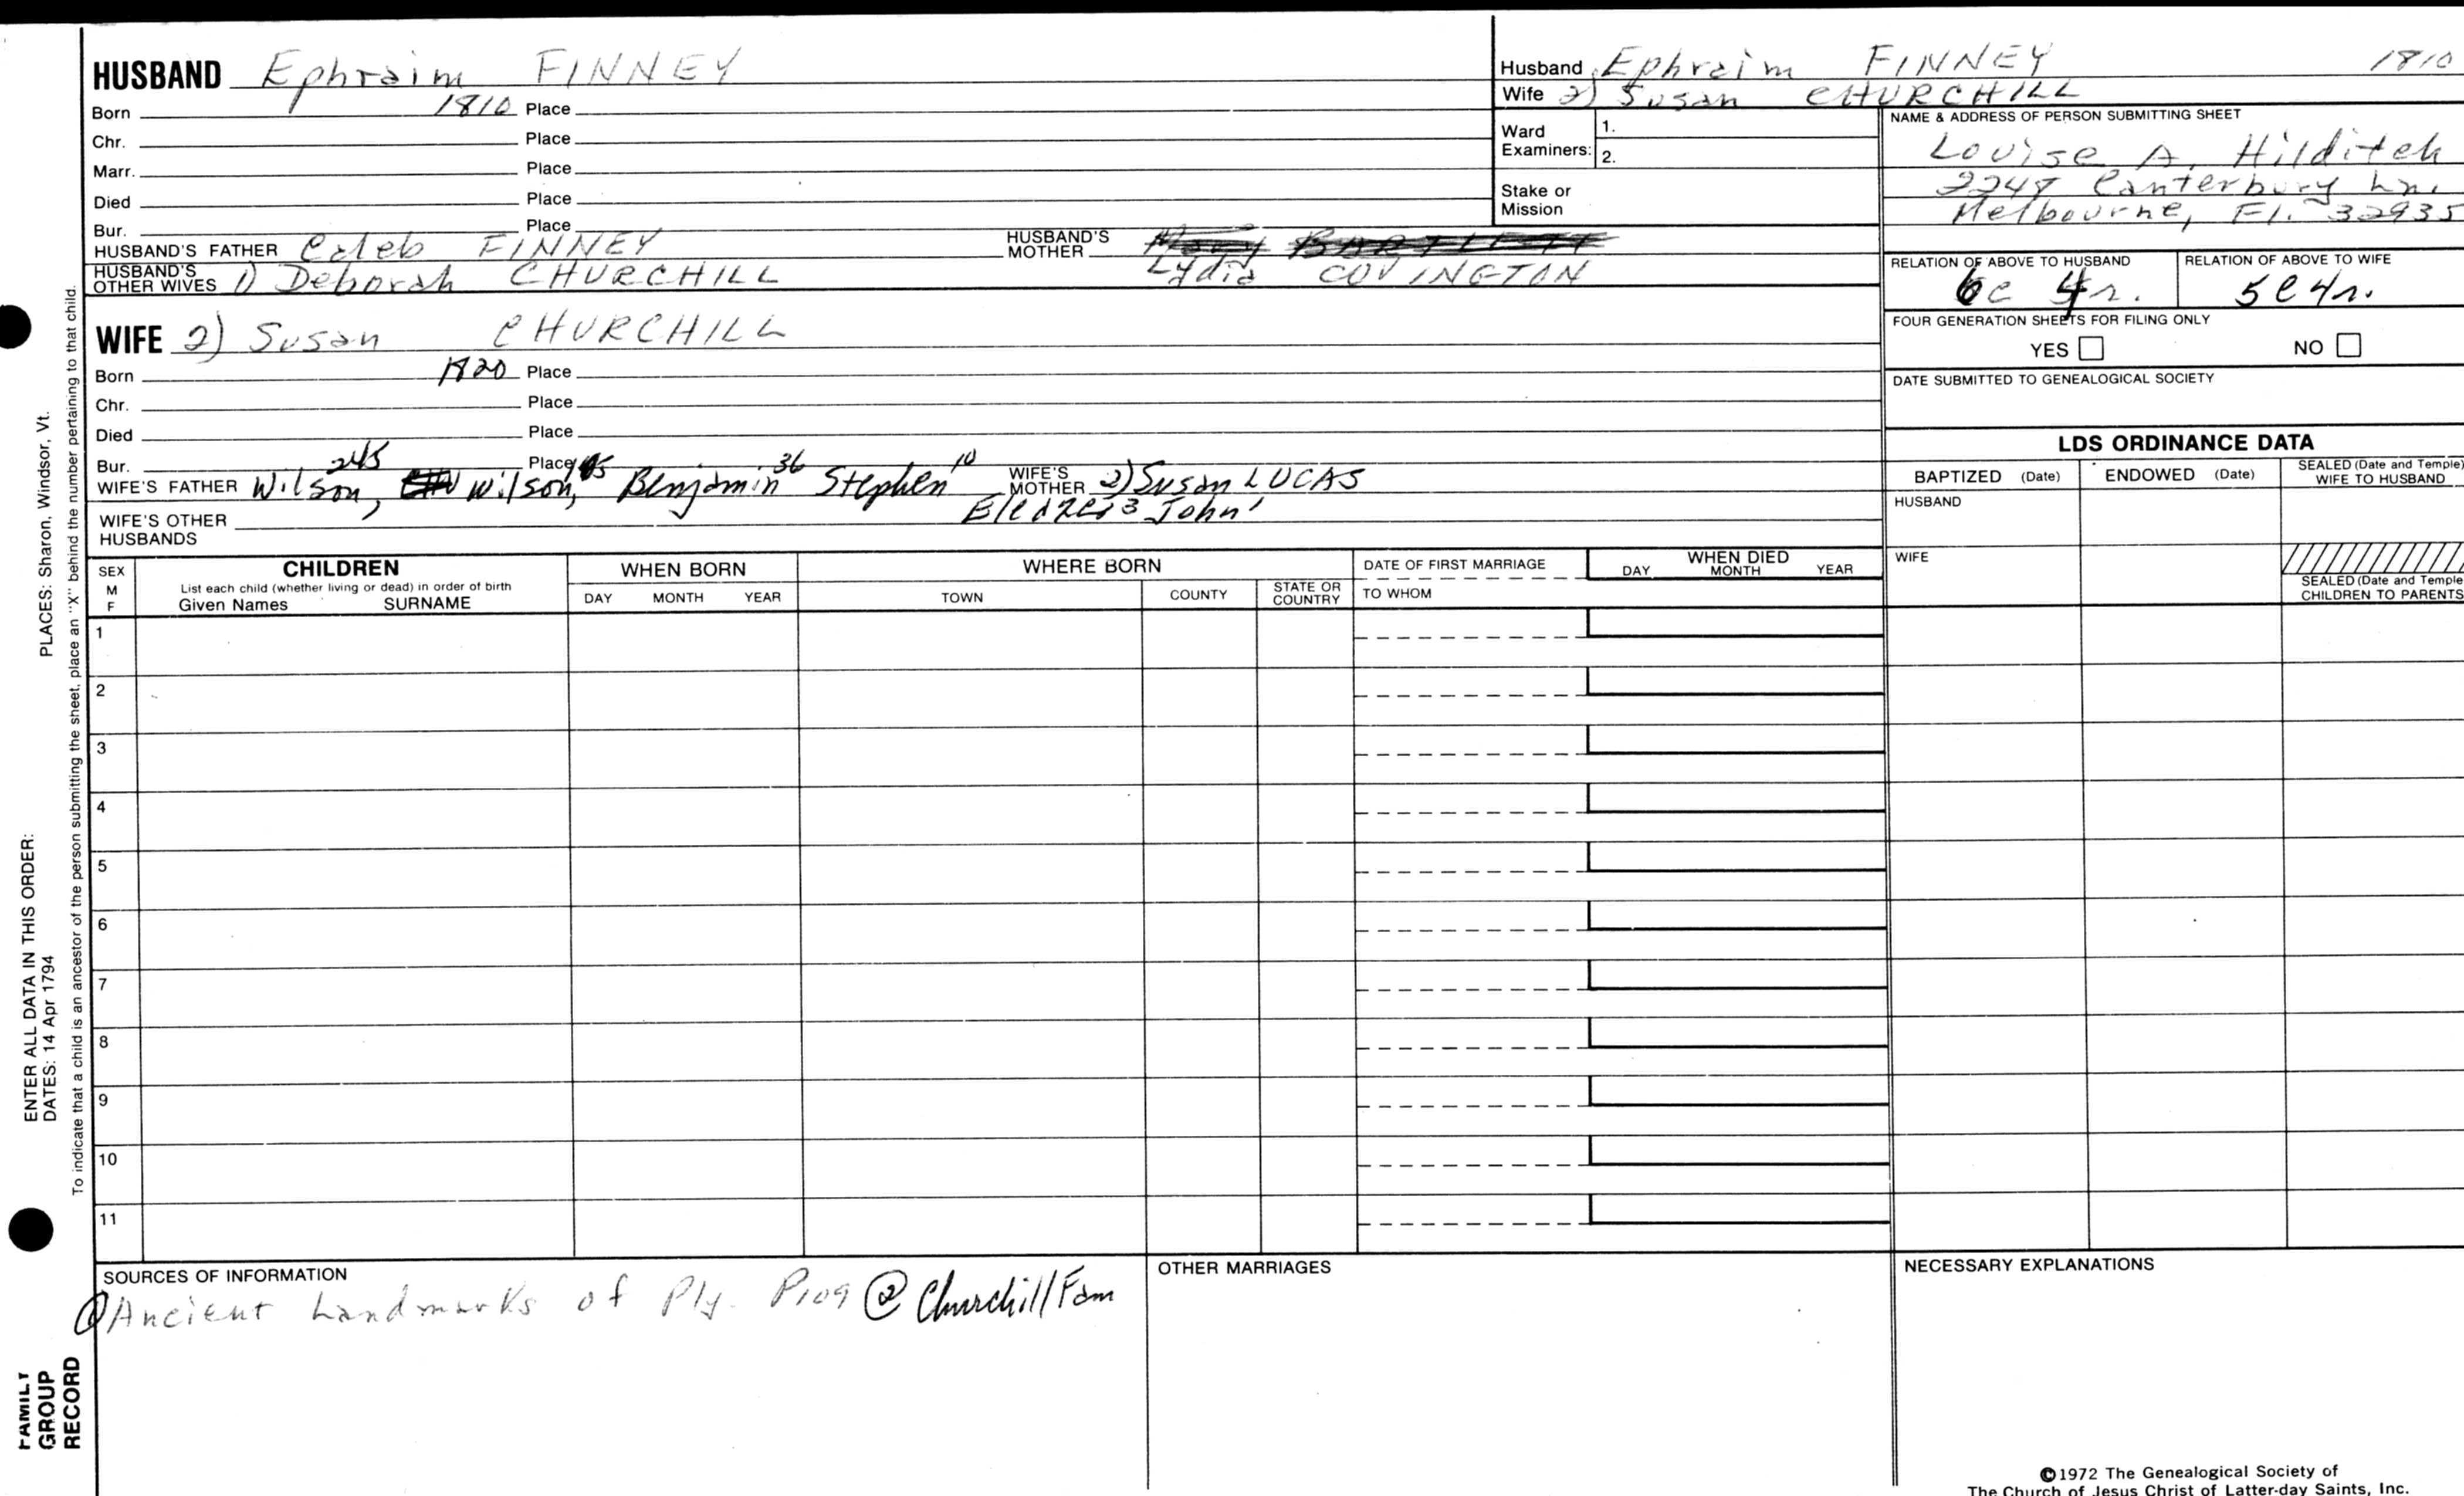 HUSBAND Ephraim FINNEY
Born 1810 Place
Chr. Place
Marr. Place
Died Place
Bur. Place
HUSBAND'S FATHER Caleb FINNEY HUSBAND'S MOTHER Mary BARTLETT
Lydia COVINGTON
HUSBAND'S OTHER WIVES 1) Deborah CHURCHILL
Husband Ephraim FINNEY 1810
Wife 2) Susan CHURCHILL
Ward Examiners: 1.
2.
Stake or Mission
NAME & ADDRESS OF PERSON SUBMITTING SHEET
Louise A. Hilditch
2248 Canterbury Ln.
Melbourne, Fl. 32935
RELATION OF ABOVE TO HUSBAND RELATION OF ABOVE TO WIFE
6c 4r. 5c4r.
FOUR GENERATION SHEETS FOR FILING ONLY
YES NO
DATE SUBMITTED TO GENEALOGICAL SOCIETY
WIFE 2) Susan CHURCHILL
Born 1820 Place
Chr. Place
Died Place
Bur. Place
WIFE'S FATHER Wilson, 245 Wilson, Benjamin 36 Stephen 10 WIFE'S MOTHER 2) Susan LUCAS
Eleazer 3 John 1
WIFE'S OTHER HUSBANDS
LDS ORDINANCE DATA
BAPTIZED (Date) ENDOWED (Date) SEALED (Date and Temple) WIFE TO HUSBAND
HUSBAND
WIFE
SEALED (Date and Temple CHILDREN TO PARENTS
SEX M F
CHILDREN
List each child (whether living or dead) in order of birth
Given Names SURNAME
WHEN BORN
DAY MONTH YEAR
WHERE BORN
TOWN COUNTY STATE OR COUNTRY
DATE OF FIRST MARRIAGE
TO WHOM
WHEN DIED
DAY MONTH YEAR
1
2
3
4
5
6
7
8
9
10
11
SOURCES OF INFORMATION
① Ancient Landmarks of Ply. P109 ② Churchill Fam
OTHER MARRIAGES
NECESSARY EXPLANATIONS
©1972 The Genealogical Society of
The Church of Jesus Christ of Latter-day Saints, Inc.
PLACES: Sharon, Windsor, Vt.
ENTER ALL DATA IN THIS ORDER:
DATES: 14 Apr 1794
To indicate that a child is an ancestor of the person submitting the sheet, place an "X" behind the number pertaining to that child.
FAMILY GROUP RECORD